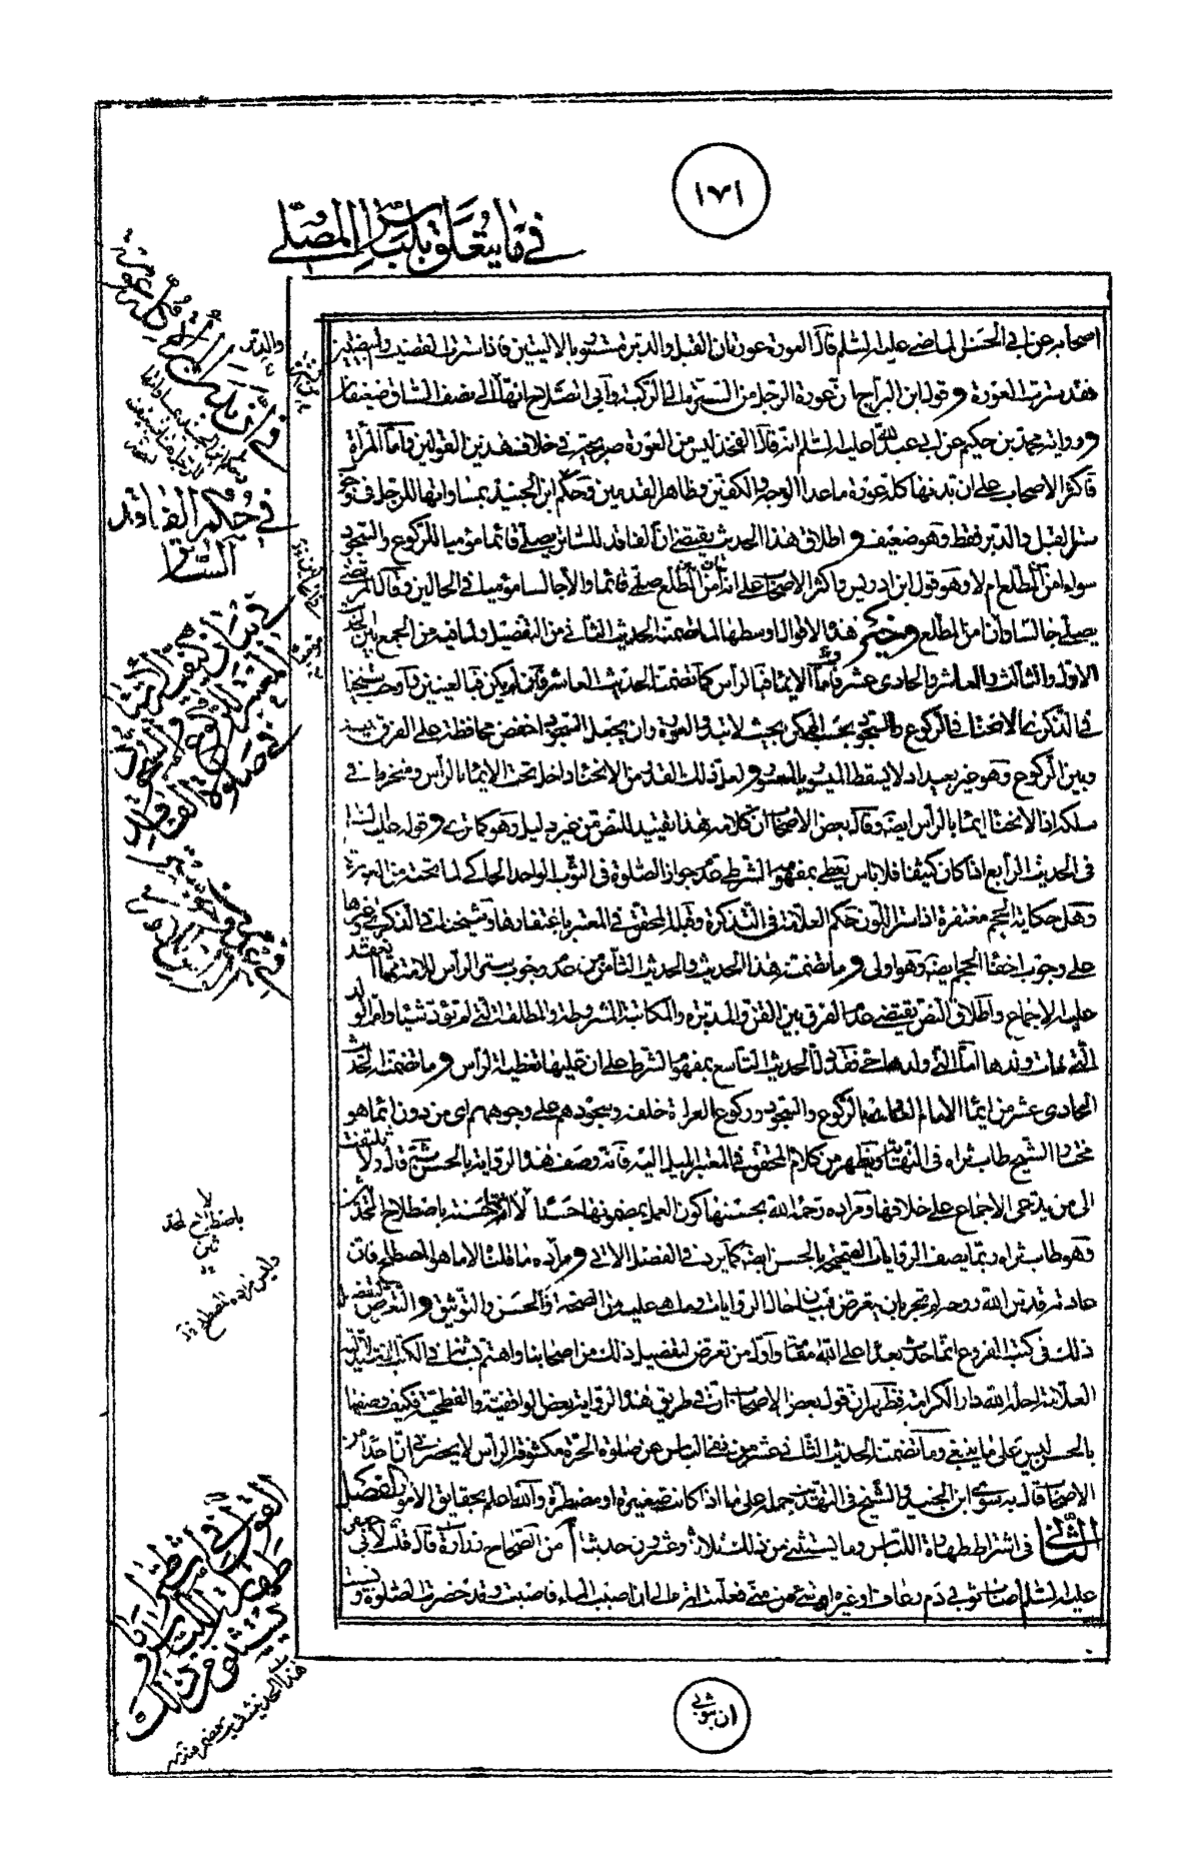 ١٧١
في ما يتعلق بلباس المصلي
اصحابه عن ابي الحسن الماضي عليه السلم قال العورة عورتان القبل والدبر والدبر مستور بالاليتين فاذا سترت القضيب والبيضتين
فقد سترت العورة وقول ابن البراج ان عورة الرجل من السرة الى الركبة وابي الصلاح انها الى نصف الساق ضعيفان
ورواية محمد بن حكيم عن ابي عبد الله عليه السلم انه قال الفخذ ليس من العورة صريحة في خلاف هذين القولين واما المرأة
فاكثر الاصحاب على ان بدنها كله عورة ما عدا الوجه والكفين وظاهر القدمين وحكم ابن الجنيد بمساواتها للرجل في وجوب
ستر القبل والدبر فقط وهو ضعيف واطلاق هذا الحديث يقتضي ان الفاقد للساتر يصلي قائما موميا للركوع والسجود
سواء امن المطلع ام لا وهو قول ابن ادريس واكثر الاصحاب على انه ان امن المطلع صلى قائما والا جالسا موميا في الحالين وقال المرتضى
يصلي جالسا وان امن المطلع وخير هذه الاقوال اوسطها لما تضمنه الحديث الثاني من التفصيل ولما فيه من الجمع بين الحديث
الاول والثالث والعاشر والحادي عشر واما الايماء فبالرأس كما تضمنه الحديث العاشر فان لم يكن فبالعينين واوجب شيخنا
في الذكرى الانحناء في الركوع والسجود بحسب الممكن بحيث لا تبدو العورة وان يجعل السجود اخفض محافظة على الفرق بينه
وبين الركوع وهو غير بعيد اذ لا يسقط الميسور بالمعسور ولعل ذلك القدر من الانحناء داخل تحت الايماء بالرأس ومنخرط في
سلكه اذ الانحناء ايماء بالرأس ايضا وقال بعض الاصحاب ان كلامه هذا تقييد للنص من غير دليل وهو كما ترى وقوله عليه السلم
في الحديث الرابع اذا كان كثيفا فلا باس يعطي بمفهوم الشرط عدم جواز الصلوة في الثوب الواحد الحاكي لما تحته من العورة
وهل حكاية الحجم مغتفرة اذا ستر اللون حكم العلامة في التذكرة وقبله المحقق في المعتبر باغتفارها وشيخنا في الذكرى وغيرها
على وجوب اخفاء الحجم ايضا وهو اولى وما تضمنه هذا الحديث والحديث الثامن من عدم وجوب ستر الرأس للامة مما انعقد
عليه الاجماع واطلاق النص يقتضي عدم الفرق بين القن والمدبرة والمكاتبة المشروطة والمطلقة التي لم تؤد شيئا وام الولد
التي مات ولدها اما التي ولدها حي فقد دل الحديث التاسع بمفهوم الشرط على ان عليها تغطية الرأس وما تضمنه الحديث
الحادي عشر من ايماء الامام بالركوع والسجود وركوع العراة خلفه وسجودهم على وجوههم اي من دون ايماء هو
مختار الشيخ طاب ثراه في النهاية ويظهر من كلام المحقق في المعتبر الميل اليه فانه وصف هذه الرواية بالحسن ثم قال ولا يلتفت
الى من يدعي الاجماع على خلافها ومراده رحمه الله بحسنها كون العمل بمضمونها حسنا لا انها حسنة باصطلاح المتأخرين
وهو طاب ثراه ربما يصف الروايات الصحيحة بالحسن ايضا كما يرد في الفصل الاتي ومراده ما قلناه لا ما هو المصطلح فان
عادته قدس الله روحه لم تجر بان يتعرض لبيان حال الروايات وما هي عليه من الصحة والحسن والتوثيق والتعرض لتفصيل
ذلك في كتب الفروع انما حدث بعده اعلى الله مقامه واول من تعرض لتفصيل ذلك من اصحابنا واهتم بشأنه في الكتب الاستدلالية
العلامة احله الله دار الكرامة فظهر ان قول بعض الاصحاب ان في طريق هذه الرواية بعض الواقفية والفطحية فكيف وصفها
بالحسن ليس على ما ينبغي وما تضمنه الحديث الثاني عشر من نفي الباس عن صلوة الحرة مكشوفة الرأس لا يحضرني ان احدا من
الاصحاب قال به سوى ابن الجنيد والشيخ في التهذيب حمله على ما اذا كانت صغيرة او مضطرة والله اعلم بحقايق الامور الفصل
الثاني في اشتراط طهارة اللباس وما يستثنى من ذلك ثلاثة وعشرون حديثا أ من الصحاح زرارة قال قلت لابي جعفر
عليه السلم اصاب ثوبي دم رعاف او غيره او شيء من مني فعلمت اثره الى ان اصيب الماء فاصبت وقد حضرت الصلوة ونسيت
ان بثوبي
والدبر
في ان بدن المرأة كله عورة
في حكم الفاقد
الساتر
في بيان كيفية الستر
باصطلاح المتأخرين
القول في اشتراط
طهارة اللباس وما
يستثنى من ذلك